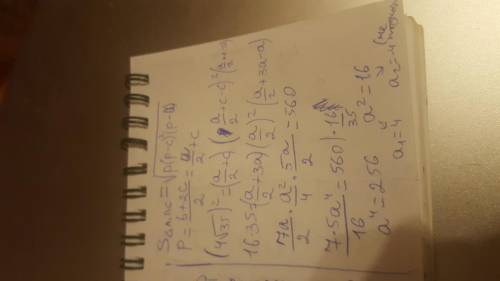 S = √p(p-c)(p-
P = b+2c/2 = a/2 + c
(4√35)² = (a/2 + c)(a/2 + c - c)²(
16·35 (a/2 + 3a)(a/2)²(a/2 + 3a - a)
7a/2 · a²/4 · 5a/2 = 560
7·5a⁴/16 = 560 | · 16/35
a⁴ = 256 a² = 16
a₁ = 4 a₂ = -4 (не